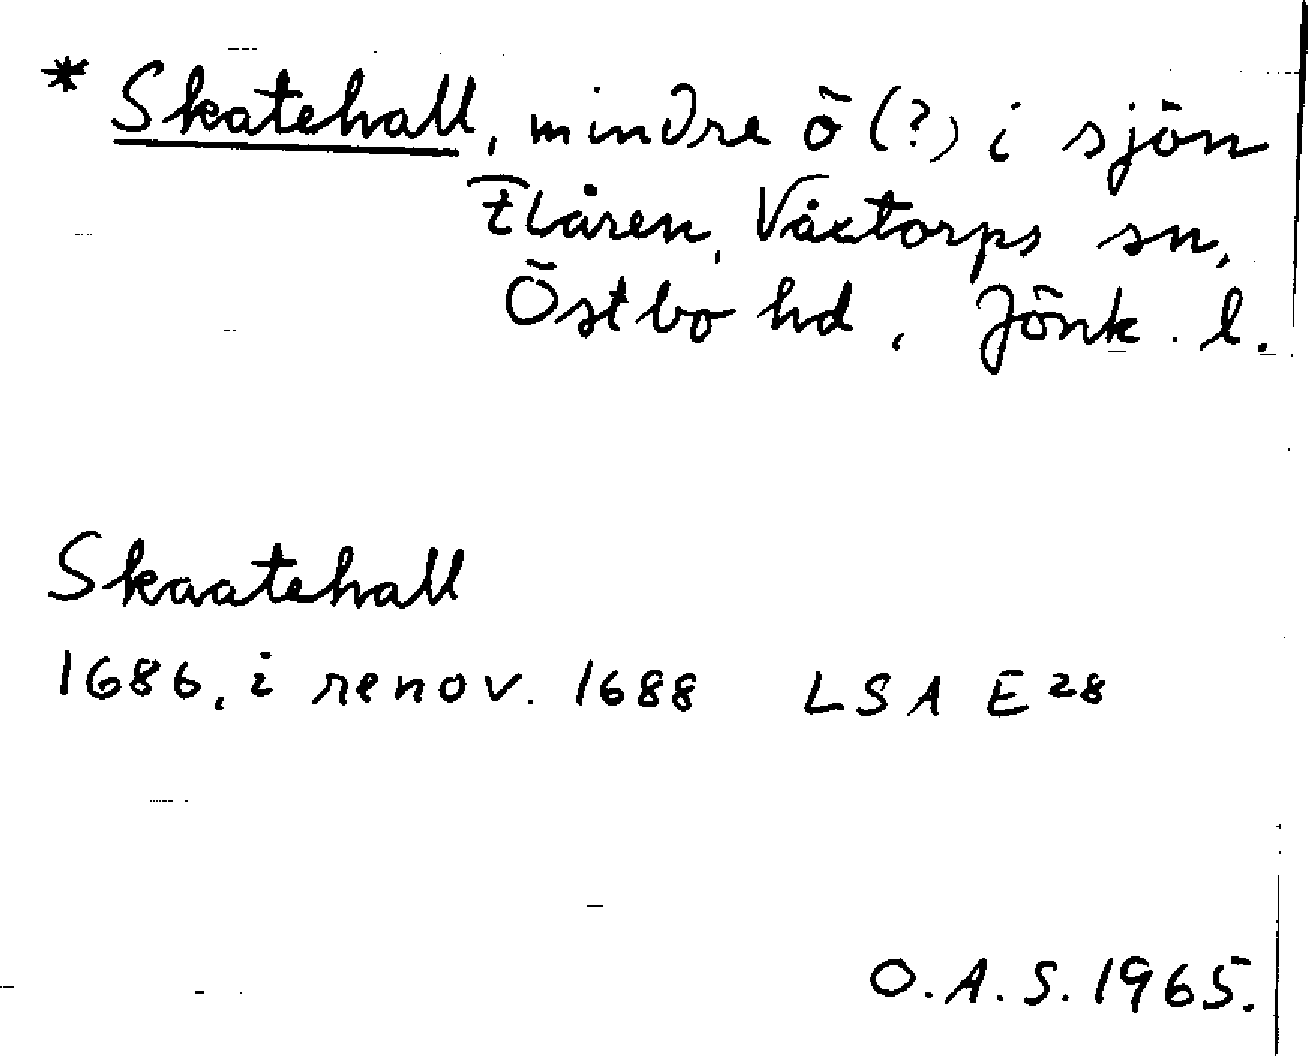 * Skatehall, mindre ö (?) i sjön
Flåren, Våxtorps sn,
Östbo hd, Jönk. l.
Skaatehall
1686, i renov. 1688 LSA E 28
O.A.S. 1965.